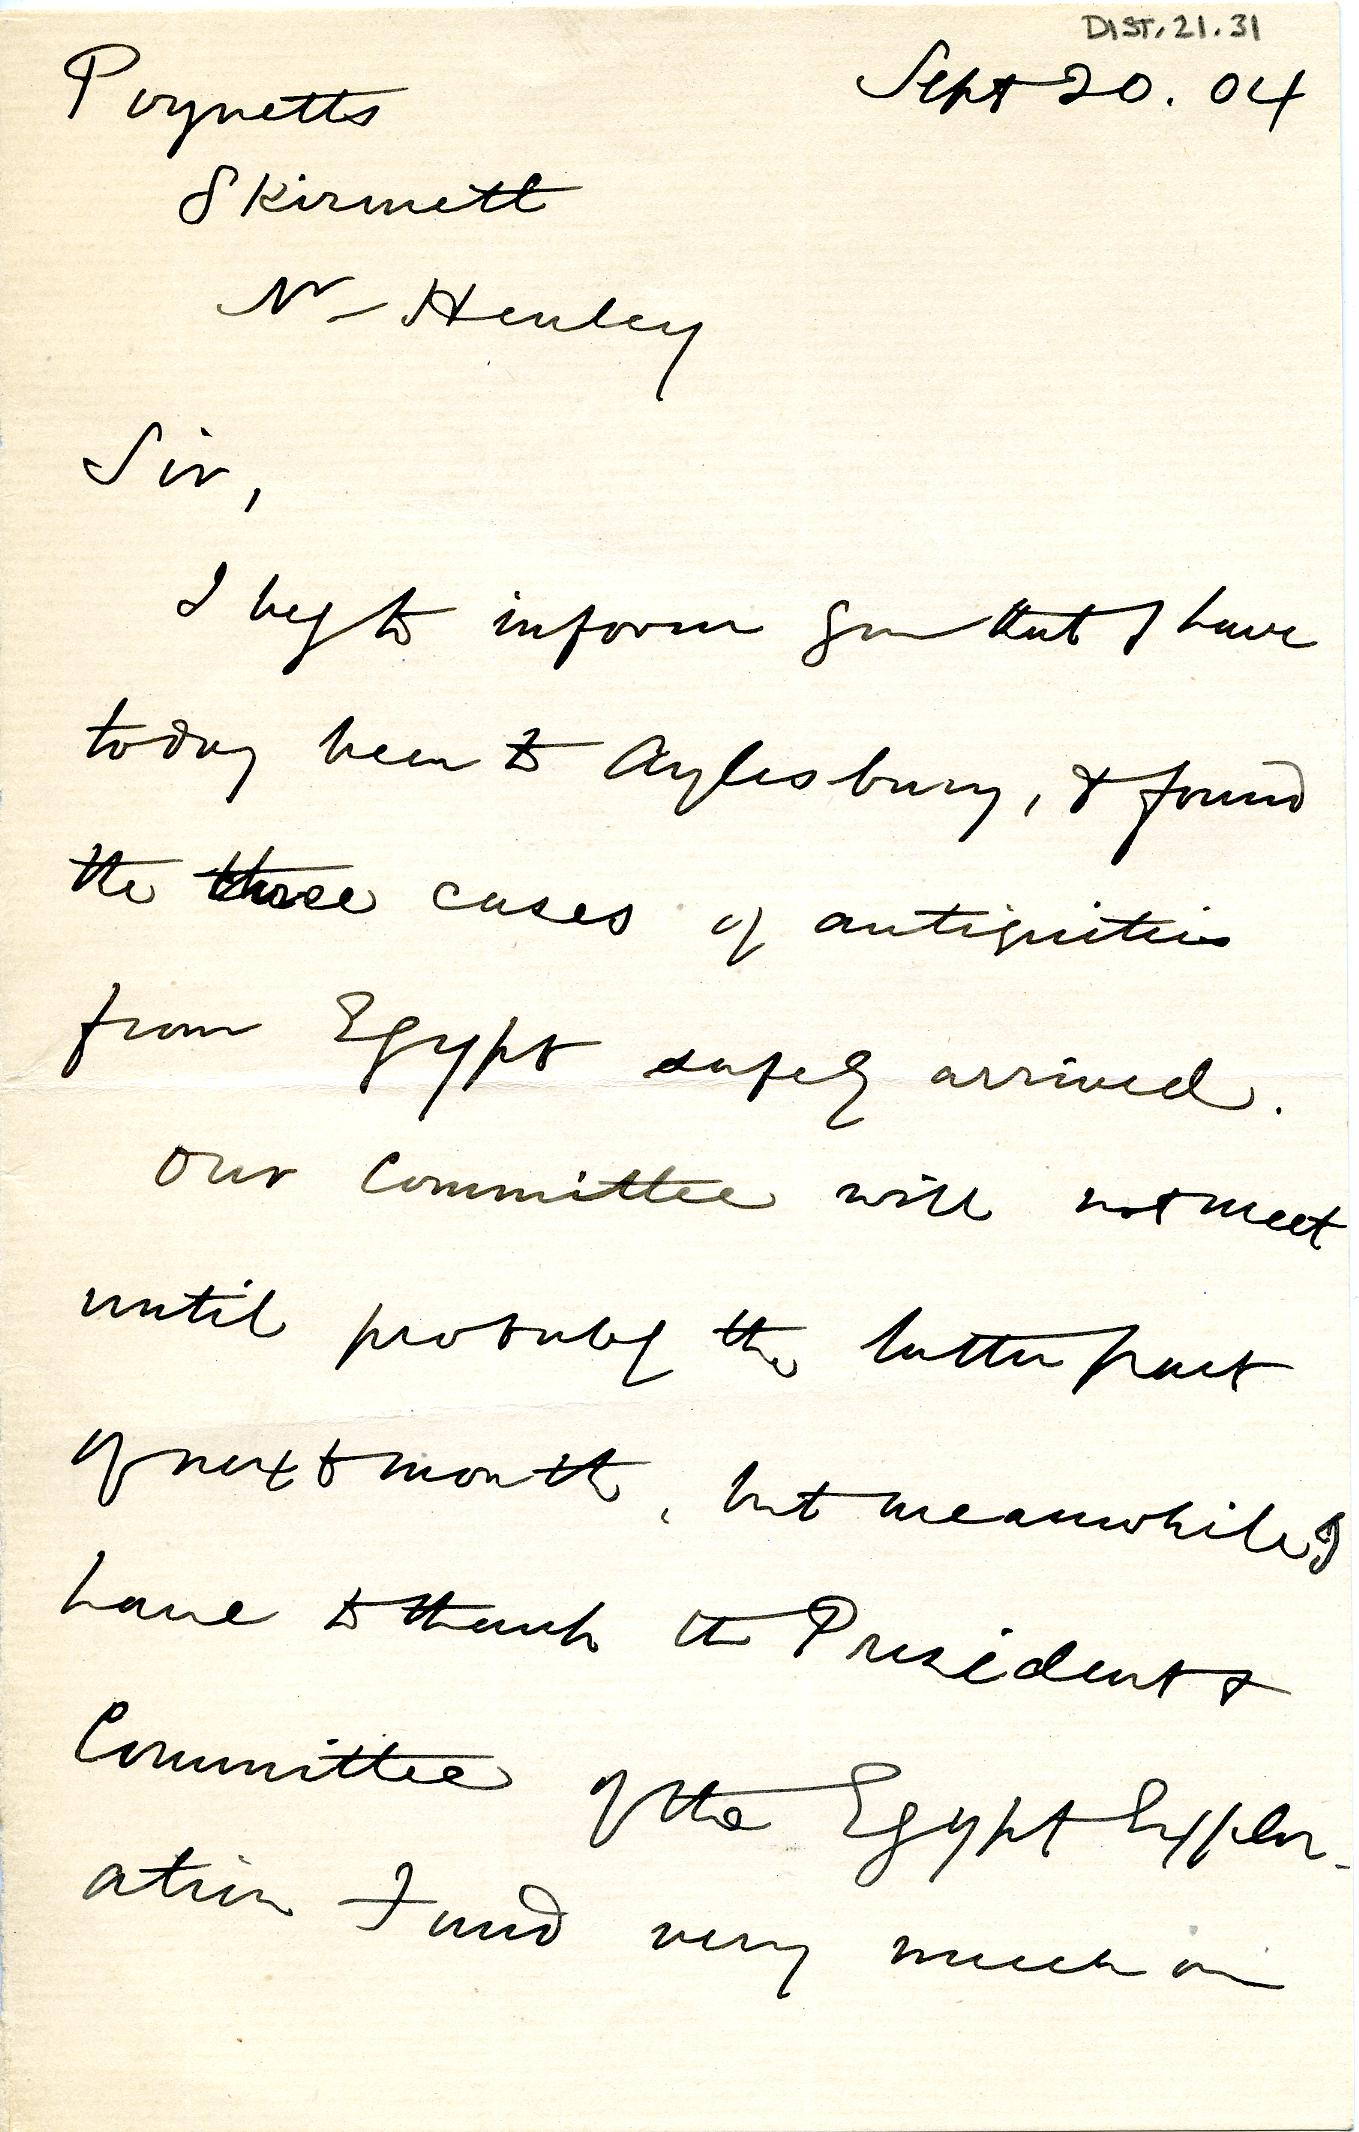 DIST.21.31
Poynetts Sept 20. 04
Skirmett
Nr Henley
Sir,
I beg to inform you that I have
today been to Aylesbury, & found
the three cases of antiquities
from Egypt safely arrived.
Our Committee will not meet
until probably the latter part
of next month, but meanwhile I
have to thank the President &
Committee of the Egypt Explor-
ation Fund very much on